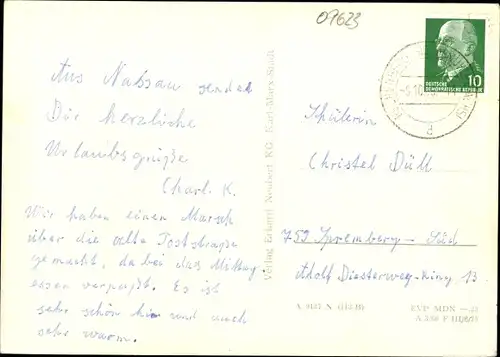 07623
Aus Nassau sendet
Dir herzliche
Urlaubsgrüße
Charl. K.
Wir haben einen Marsch
über die alte Poststraße
gemacht, da bei das Mittag-
essen verpaßt. Es ist
sehr schön hier und auch
sehr warm.
Verlag Erhard Neubert KG Karl-Marx-Stadt
DEUTSCHE
DEMOKRATISCHE REPUBLIK
10
a
Schülerin
Christel Düll
759 Spremberg-Süd
Adolf Diesterweg-Ring 13
EVP MDN